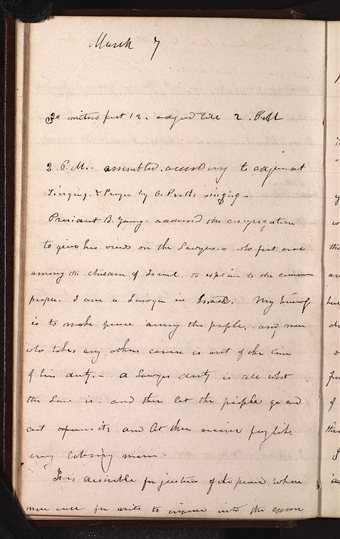 March 7
30 minutes past 12. adjod till 2. P.M
2 P.M. assembled according to adjomt
Singing & Prayer by O. Pratt singing.
President B. Young addressed the congregation
to give his views on the Lawyers. who first were
among the children of Israel, to explain to the common
people. I am a Lawyer in Israel. My business
is to make peace among the people, any man
who takes any other course is out of the line
of his duty. a Lawyers duty is tell what
the Law is. and then let the people go and
act upon it; and let them never pay like
any laboring man.
It is desirable for justices of the peace, when
men ask for writs to enquire into the cause